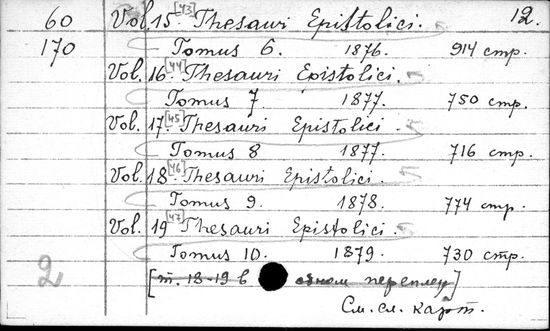 60 Vol. 15 [43] Thesauri Epistolici. 12.
170 Tomus 6. 1876. 914 стр.
Vol. 16 [44] Thesauri Epistolici.
Tomus 7. 1877. 750 стр.
Vol. 17 [45] Thesauri Epistolici.
Tomus 8 1877. 716 стр.
Vol. 18 [46] Thesauri Epistolici.
Tomus 9. 1878. 774 стр.
Vol. 19 [47] Thesauri Epistolici.
Tomus 10. 1879. 730 стр.
2 [т. 18-19 в одном переплет]
См. сл. карт.